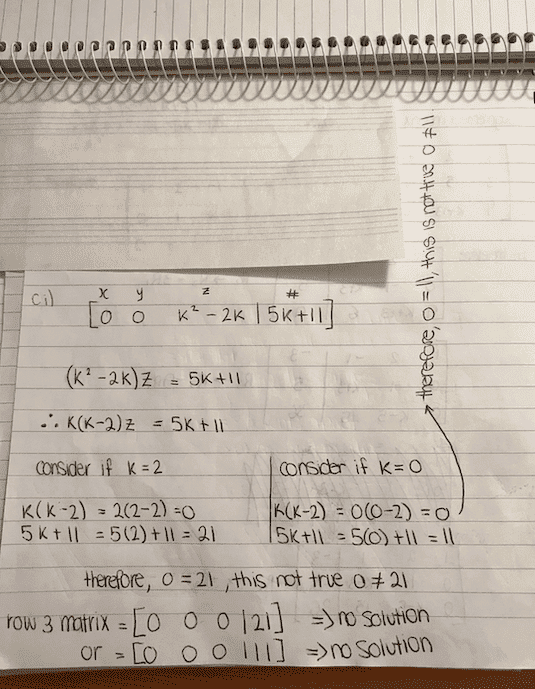 ci)
x y z #
[0 0 K² - 2K | 5K+11]
(K² - 2K)Z = 5K+11
∴ K(K-2)Z = 5K+11
consider if K=2
K(K-2) = 2(2-2) =0
5K+11 = 5(2)+11 = 21
consider if K=0
K(K-2) = 0(0-2) = 0
5K+11 = 5(0)+11 = 11
therefore, 0 = 11, this is not true 0 ≠ 11
therefore, 0 = 21, this not true 0 ≠ 21
row 3 matrix = [0 0 0 | 21] => no solution
or = [0 0 0 | 11] => no solution